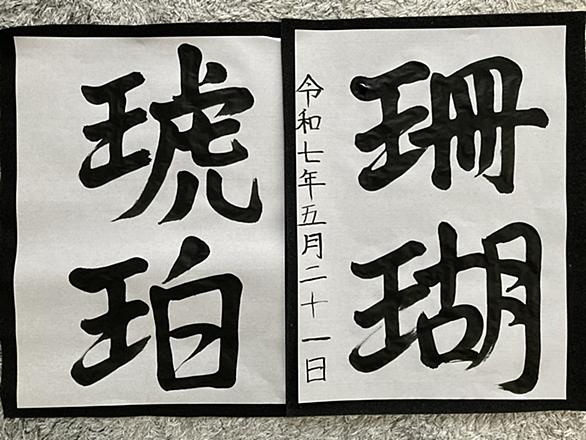 珊瑚
令和七年五月二十一日
琥珀